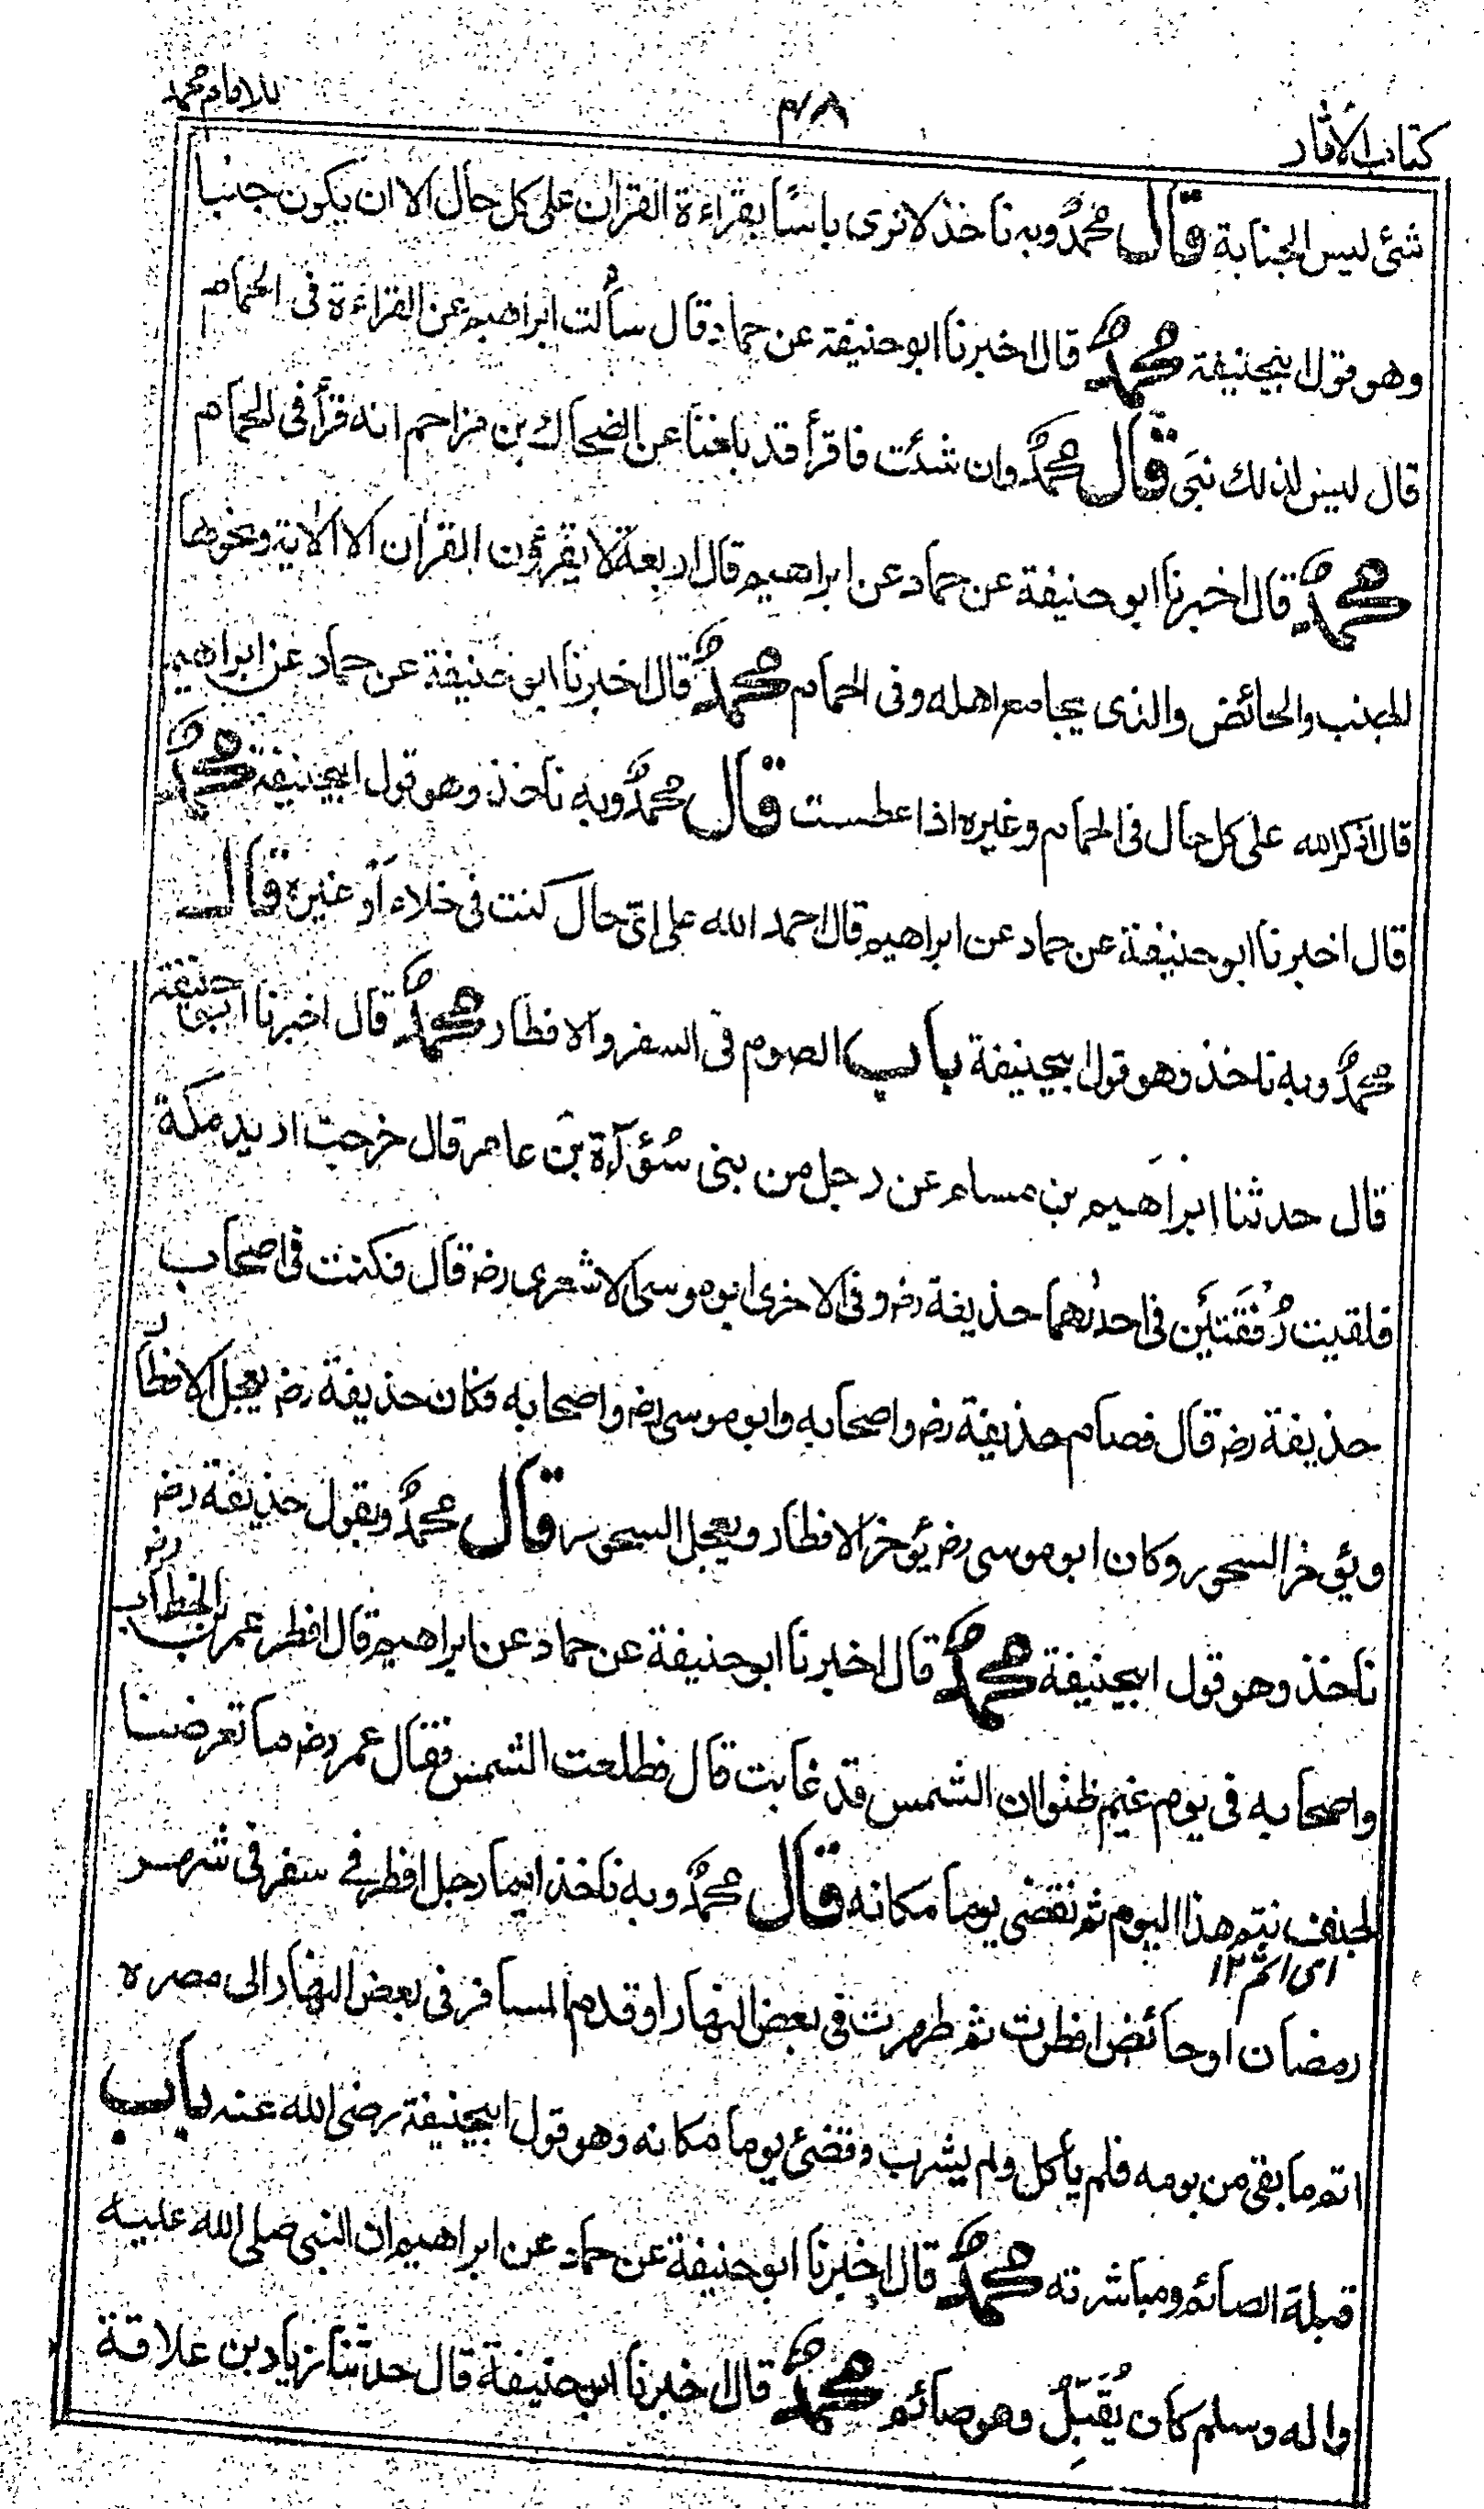 كتاب الأثار
٤٨
للامام محمد
شئ ليس الجنابة قال محمدٌ وبه ناخذ لا نرى باسًا بقراءة القرآن على كل حال الا ان يكون جنبا
وهو قول ابيحنيفة محمدٌ قال اخبرنا ابو حنيفة عن حماد قال سألت ابراهيم عن القراءة فى الحمام
قال ليس لذلك بنى قال محمدٌ وان شئت فاقرأ قد بلغنا عن الضحاك بن مزاحم انه قرأ فى الحمام
محمدٌ قال اخبرنا ابو حنيفة عن حماد عن ابراهيم قال اربعة لا يقرءون القرآن الا الآية ونحوها
الجنب والحائض والذى يجامع اهله وفى الحمام محمدٌ قال اخبرنا ابو حنيفة عن حماد عن ابراهيم
قال اذكر الله على كل حال فى الحمام وغيره اذا عطست قال محمدٌ وبه ناخذ وهو قول ابيحنيفة محمدٌ
قال اخبرنا ابو حنيفة عن حماد عن ابراهيم قال احمد الله على اىّ حال كنت فى خلاء أو غيره قال
محمدٌ وبه ناخذ وهو قول ابيحنيفة باب الصوم فى السفر والافطار محمدٌ قال اخبرنا ابو حنيفة
قال حدثنا ابراهيم بن مسلم عن رجل من بنى سُؤاءة بن عامر قال خرجت اريد مكة
فلقيت رُفْقَتَيْن فى احدٰهما حذيفة رض وفى الاخرى ابو موسى الاشعرى رض قال فكنت فى اصحاب
حذيفة رض قال فصام حذيفة رض واصحابه وابو موسى رض واصحابه فكان حذيفة رض يعجل الافطار
ويؤخر السحور وكان ابو موسى رض يؤخر الافطار ويعجل السحور قال محمدٌ وبقول حذيفة رض
ناخذ وهو قول ابيحنيفة محمدٌ قال اخبرنا ابو حنيفة عن حماد عن ابراهيم قال افطر عمر بن الخطاب رض
واصحابه فى يوم غيم ظنوا ان الشمس قد غابت قال فطلعت الشمس فقال عمر رض ما تعرضنا
لجنف نتم هذا اليوم ثم نقضى يوما مكانه قال محمدٌ وبه ناخذ ايما رجل افطر فى سفر فى شهر
اى اثم ١٢
رمضان او حائض افطرت ثم طهرت فى بعض النهار او قدم المسافر فى بعض النهار الى مصره
اتم ما بقى من يومه فلم يأكل ولم يشرب وقضى يوما مكانه وهو قول ابيحنيفة رضى الله عنه باب
قبلة الصائم ومباشرته محمدٌ قال اخبرنا ابو حنيفة عن حماد عن ابراهيم ان النبى صلى الله عليه
واله وسلم كان يُقَبِّلُ وهو صائم محمدٌ قال اخبرنا ابو حنيفة قال حدثنا زياد بن علاقة